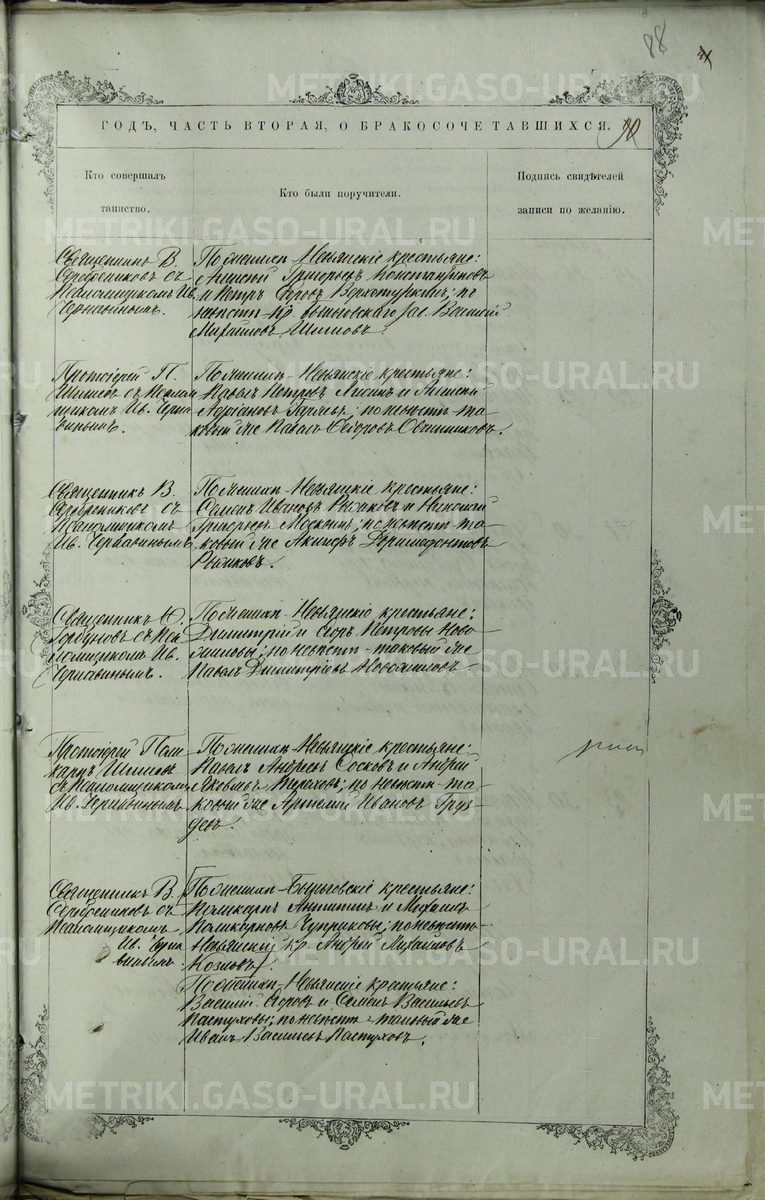 88
ГОДЪ, ЧАСТЬ ВТОРАЯ, О БРАКОСОЧЕТАВШИХСЯ.
90
Кто совершалъ
таинство.
Кто были поручители.
Подпись свидѣтелей
записи по желанію.
Священникъ В.
Серебениковъ съ
Псаломщикомъ Ив.
Чернавинымъ.
По женихѣ Невьянскіе крестьяне:
Алексѣй Григорьевъ Константиновъ
и Петръ Верхотуркинъ; по
невѣстѣ кр. зав. Василій
Михайловъ Шиловъ.
Протоіерей П.
съ Псалом
щикомъ Ив. Черна
винымъ.
По женихѣ Невьянскіе крестьяне:
Павелъ Петровъ и Алексѣй
Адріановъ; по невѣстѣ та
ковый же Павелъ Ѳедоровъ Овчинниковъ.
Священникъ В.
Серебениковъ съ
Псаломщикомъ
Ив. Чернавинымъ
По женихѣ Невьянскіе крестьяне:
Семенъ Ивановъ и Николай
Григорьевъ; по невѣстѣ та
ковый же
Священникъ Ѳ.
Горбуновъ съ Пса
ломщикомъ Ив.
Чернавинымъ.
По женихѣ Невьянскіе крестьяне:
Димитрій и Егоръ Петровы Ново
жиловы; по невѣстѣ таковый же
Павелъ Димитріевъ Новожиловъ.
Протоіерей Поли
карпъ
съ Псаломщикомъ
Ив. Чернавинымъ.
По женихѣ Невьянскіе крестьяне:
Павелъ Андреевъ Сосковъ и Андрей
Яковлевъ; по невѣстѣ та
ковый же Артемій Ивановъ Груз
девъ.
Священникъ В.
Серебениковъ съ
Псаломщикомъ
Ив. Черна
винымъ.
По женихѣ крестьяне:
Поликарпъ и Михаилъ
Поликарповъ Чуприковы; по невѣстѣ
Невьянскій кр. Андрей Михайловъ
Козловъ.
По женихѣ Невьянскіе крестьяне:
Василій Егоровъ и Семенъ Васильевъ
Пастуховы; по невѣстѣ таковый же
Иванъ Васильевъ Пастуховъ.
METRIKI.GASO-URAL.RU